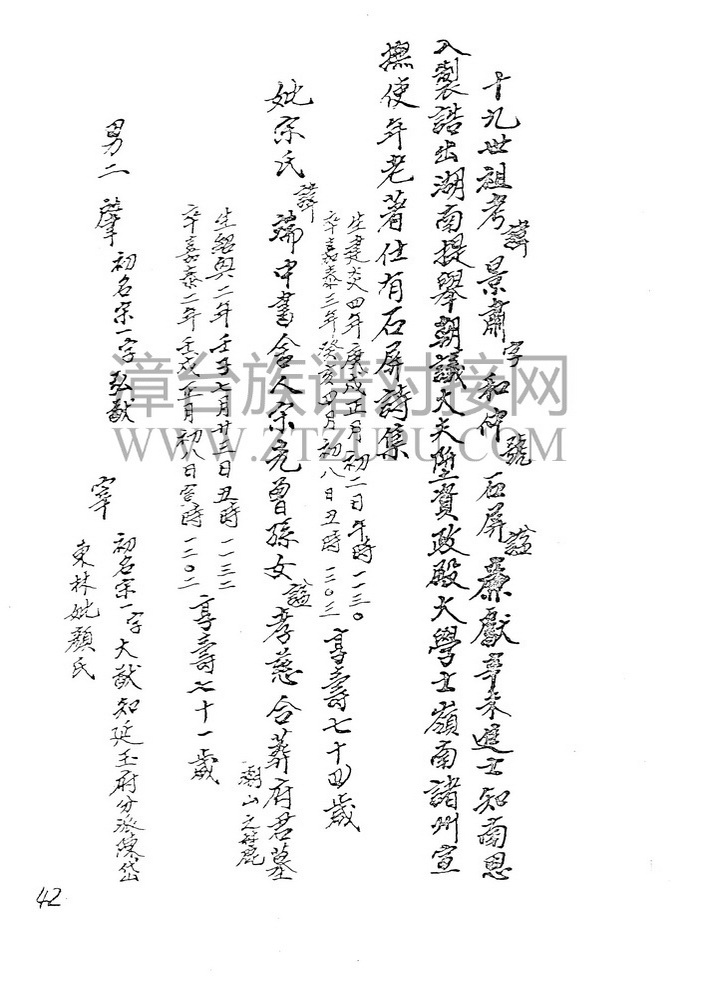 十九世祖考諱景肅字和仲號石屏諡廉獻辛未進士知南恩
入製誥出湖南提舉朝議大夫陞資政殿大學士嶺南諸州宣
撫使年老著仕有石屏詩集
生建炎四年庚戌正月初二日午時一一三〇
卒嘉泰三年癸亥四月初八日丑時一二〇三
享壽七十四歲
妣宋氏諱端中書舍人宋完曾孫女諡孝慈合葬府君墓
潮山之麓
生紹興二年壬子七月廿三日丑時一一三二
卒嘉泰二年壬戌正月初八日 時一二〇二
享壽七十一歲
男二
肇初名宗一字弘猷
宰初名宗一字大猷知延玉府分派陳岱
東林妣顏氏
42
漳台族谱对接网
WWW.ZTZUPU.COM